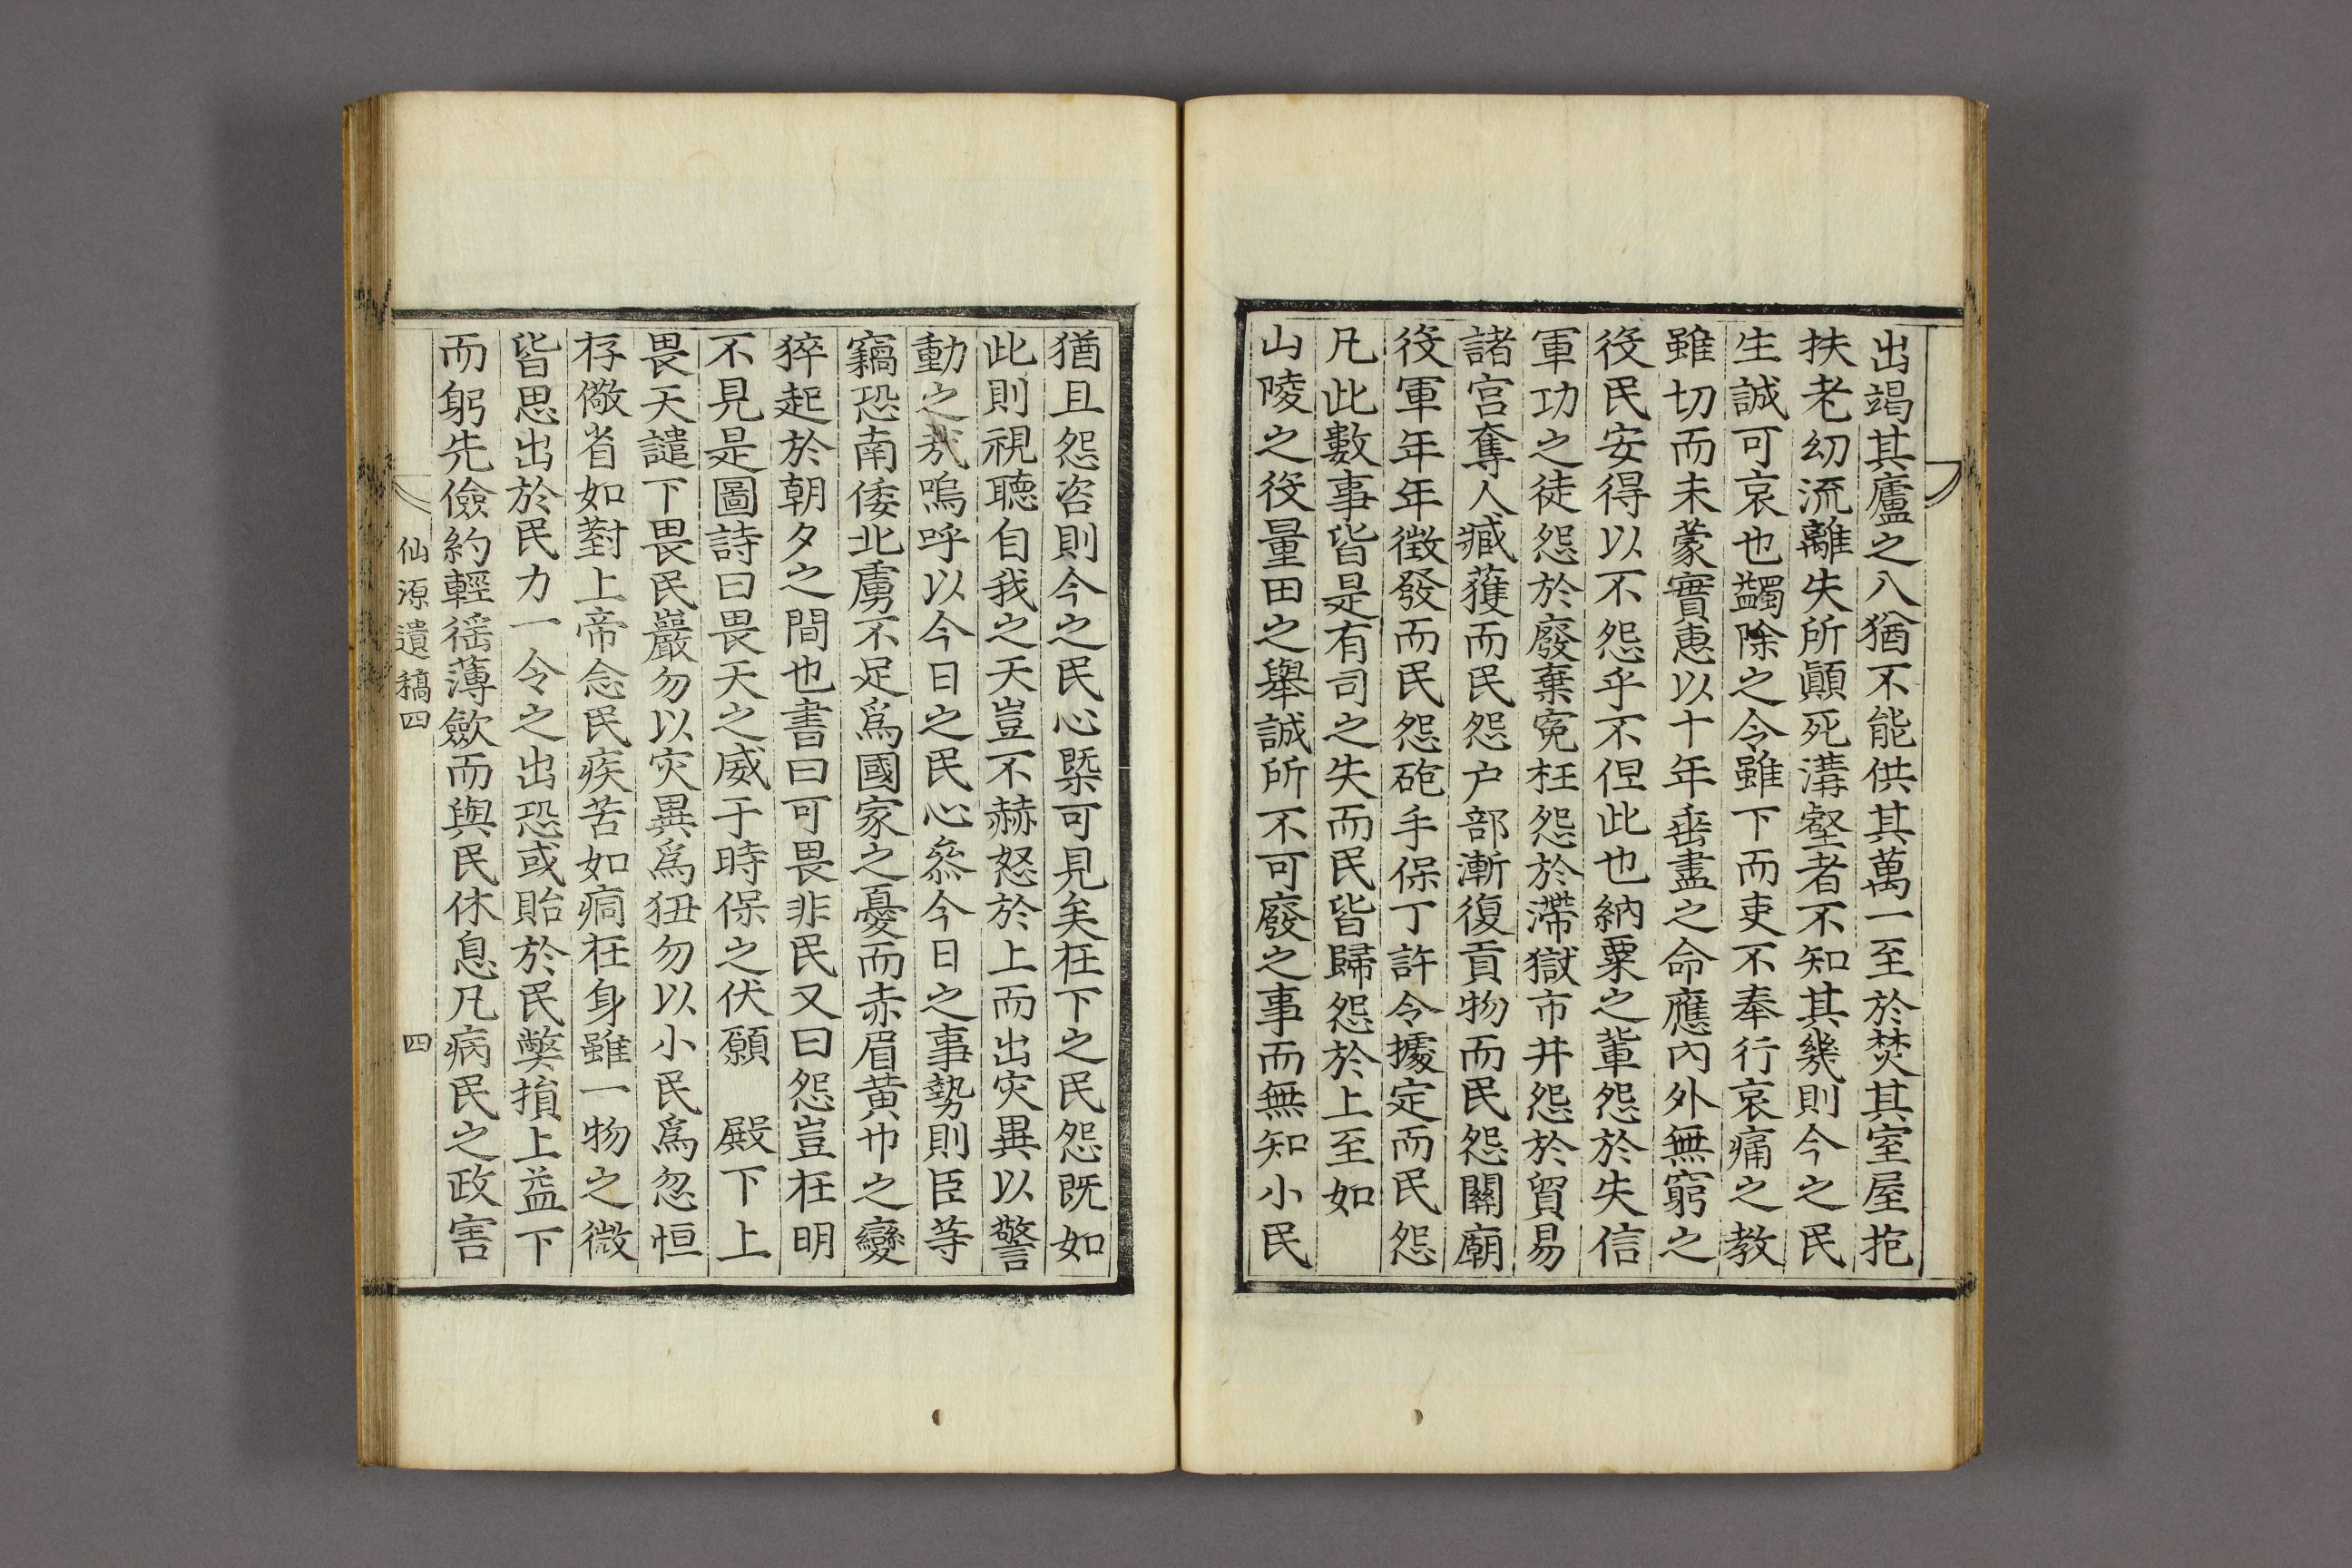 出竭其廬之入猶不能供其萬一至於焚其室屋抱
扶老幼流離失所顚死溝壑者不知其幾則今之民
生誠可哀也蠲除之令雖下而吏不奉行哀痛之教
雖切而未蒙實惠以十年垂盡之命應內外無窮之
役民安得以不怨乎不但此也納粟之輩怨於失信
軍功之徒怨於廢棄寃枉怨於滯獄市井怨於貿易
諸宮奪人臧獲而民怨户部漸復貢物而民怨關廟
役軍年年徴發而民怨砲手保丁許令據定而民怨
凡此數事皆是有司之失而民皆歸怨於上至如
山陵之役量田之擧誠所不可廢之事而無知小民
猶且怨咨則今之民心槩可見矣在下之民怨既如
此則視聽自我之天豈不赫怒於上而出灾異以警
動之哉嗚呼以今日之民心叅今日之事勢則臣等
竊恐南倭北虜不足爲國家之憂而赤眉黄巾之變
猝起於朝夕之間也書曰可畏非民又曰怨豈在明
不見是圖詩曰畏天之威于時保之伏願 殿下上
畏天譴下畏民巖勿以灾異爲狃勿以小民爲忽恒
存儆省如對上帝念民疾苦如痌在身雖一物之微
皆思出於民力一令之出恐或貽於民弊損上益下
而躬先儉約輕徭薄歛而與民休息凡病民之政害
仙源遺稿四 四